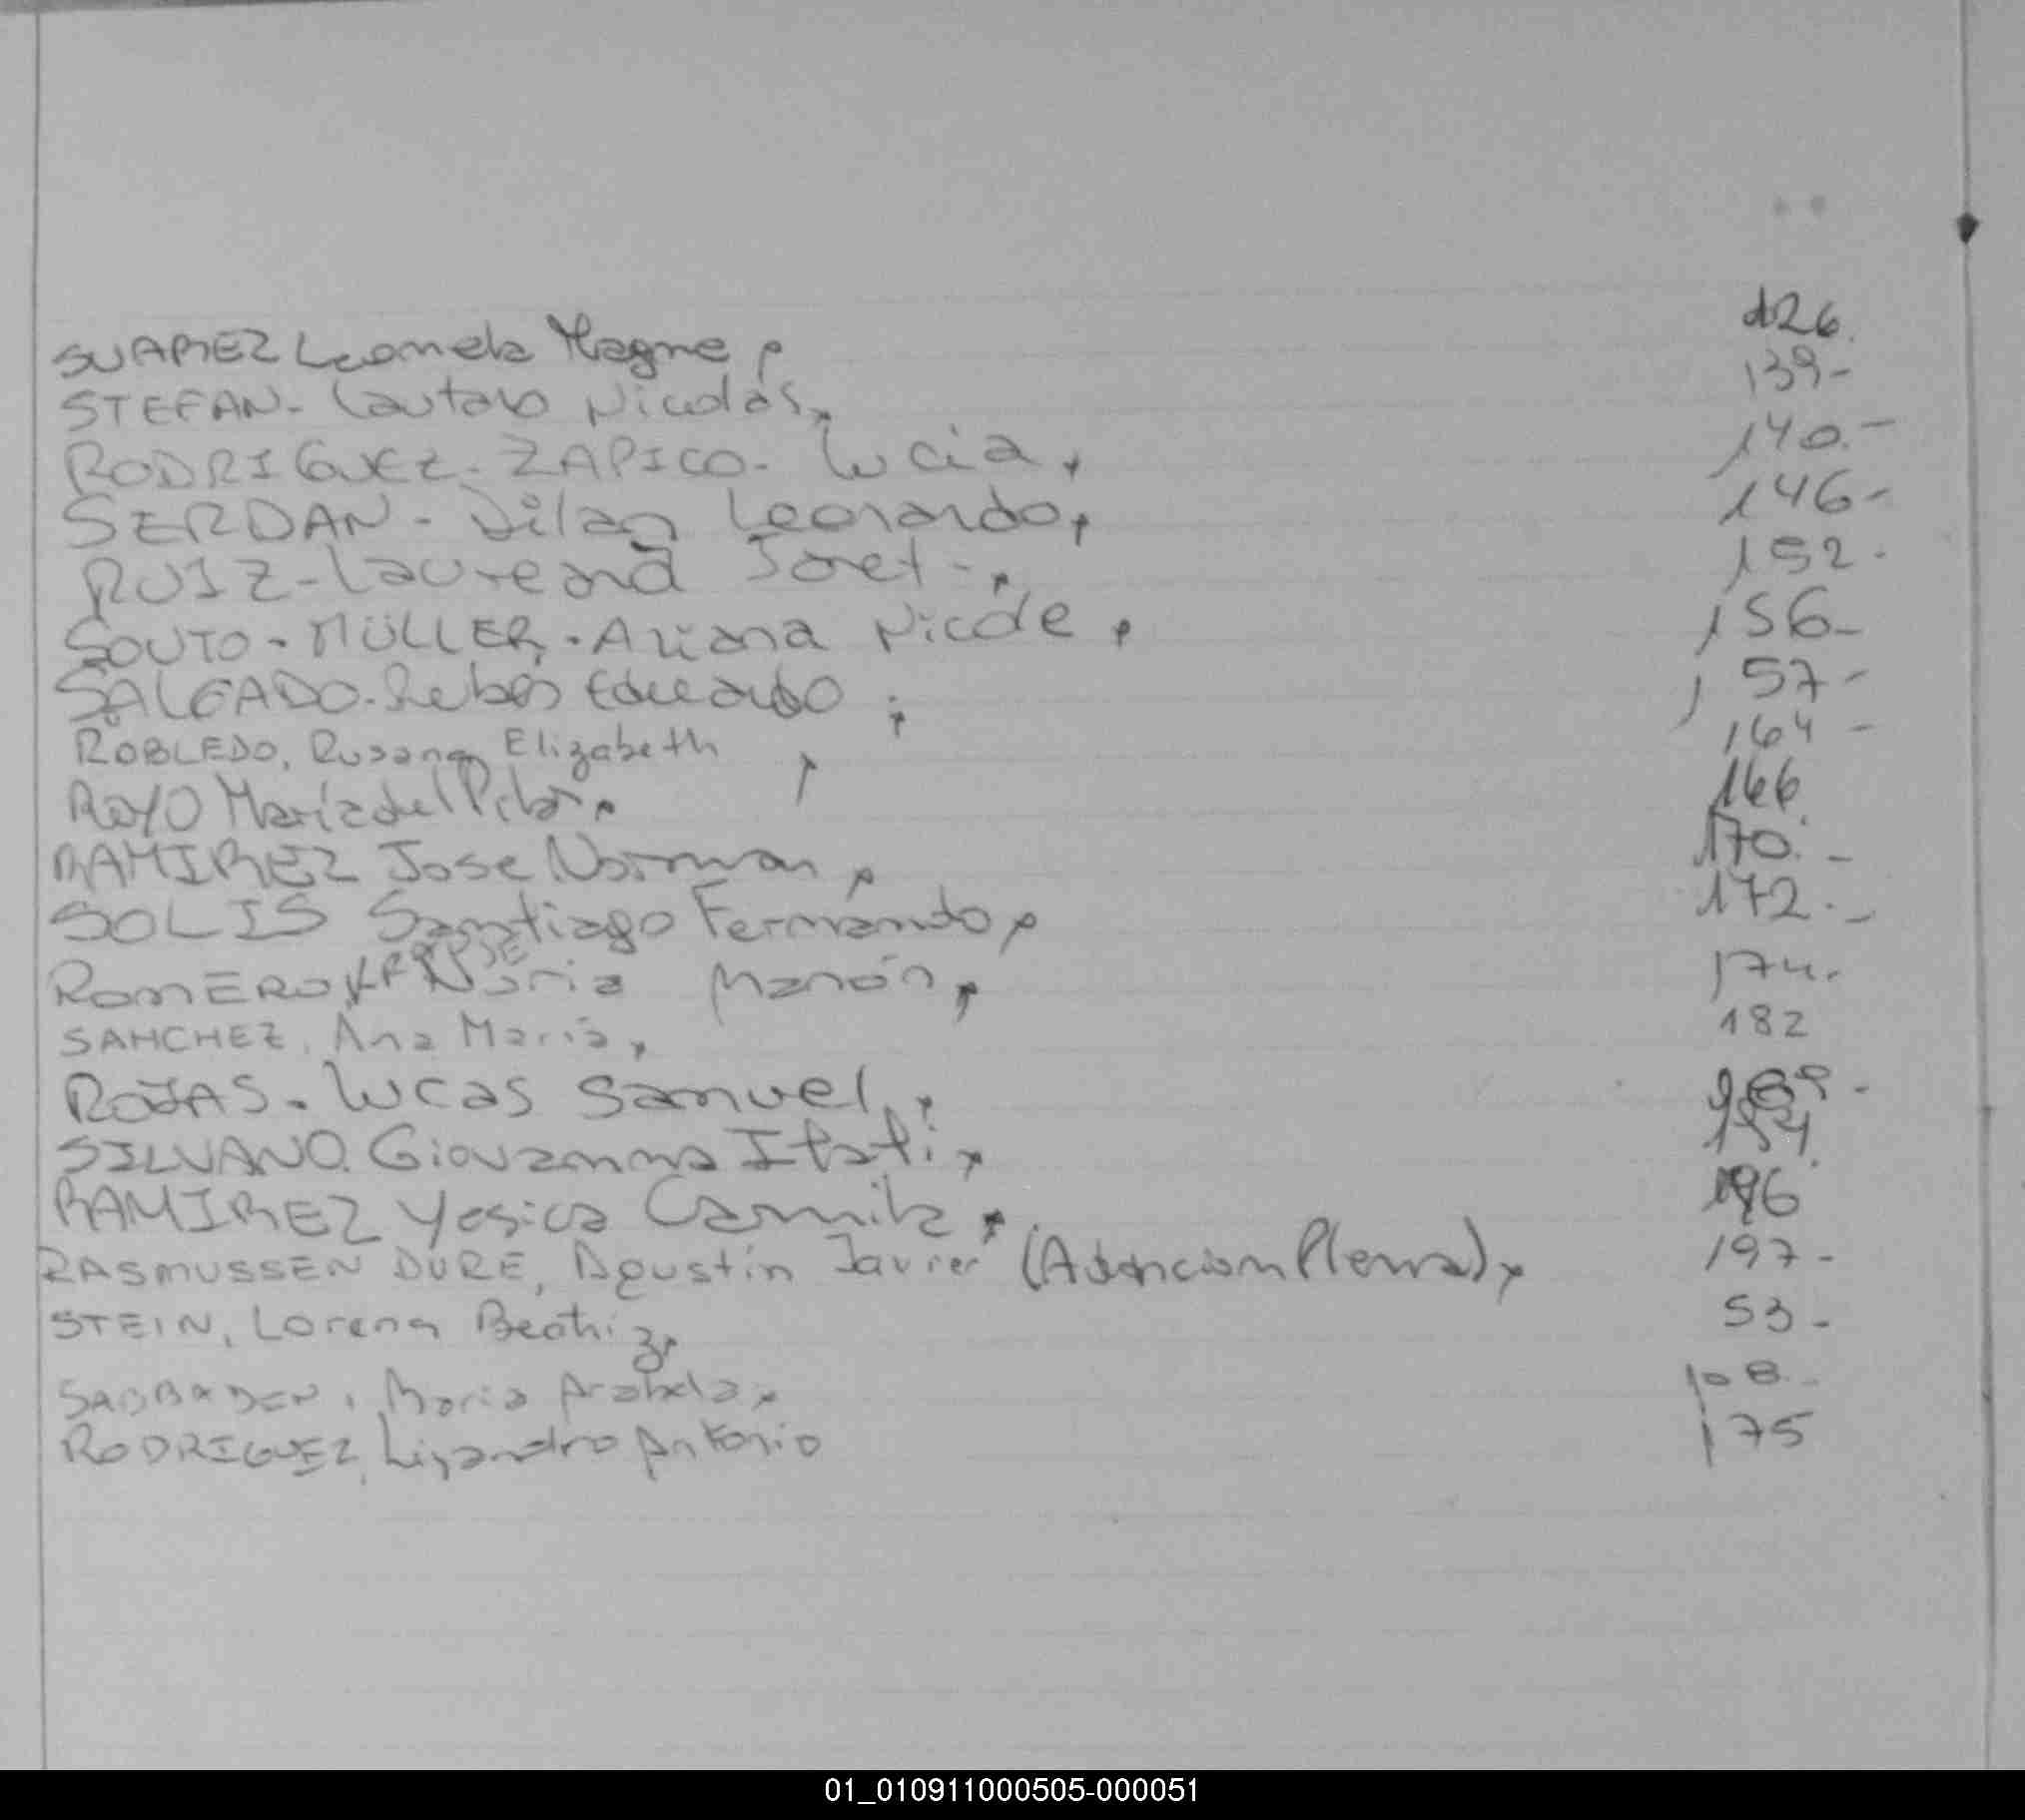 SUAREZ Leonela Magne 126.
STEFAN - Lautaro Nicolás, 139 -
RODRIGUEZ - ZAPICO - Lucia, 140. -
SERDAN - Dilan Leonardo, 146 -
RUIZ - Laureana Janet -, 152 -
SOUTO - MÜLLER - Ariana Nicole, 156 -
SALGADO - Rubén Eduardo, 157 -
ROBLEDO, Rusana Elizabeth 164 -
ROYO Maria del Pilar, 166
RAMIREZ Jose Norman, 170. -
SOLIS Santiago Fernando, 172. -
ROMERO KRAUSE Nuria Manón, 174.
SANCHEZ, Ana María, 182
ROJAS - Lucas Samuel, 189 -
SILVANO Giovanna Itati, 194
RAMIREZ Yesica Camila 196
RASMUSSEN DURE, Agustín Javier (Adoncion Plena), 197 -
STEIN, Lorena Beatriz, 53 -
Maria Arabela, 108 -
RODRIGUEZ, Lizandro Antonio 175
01_010911000505-000051